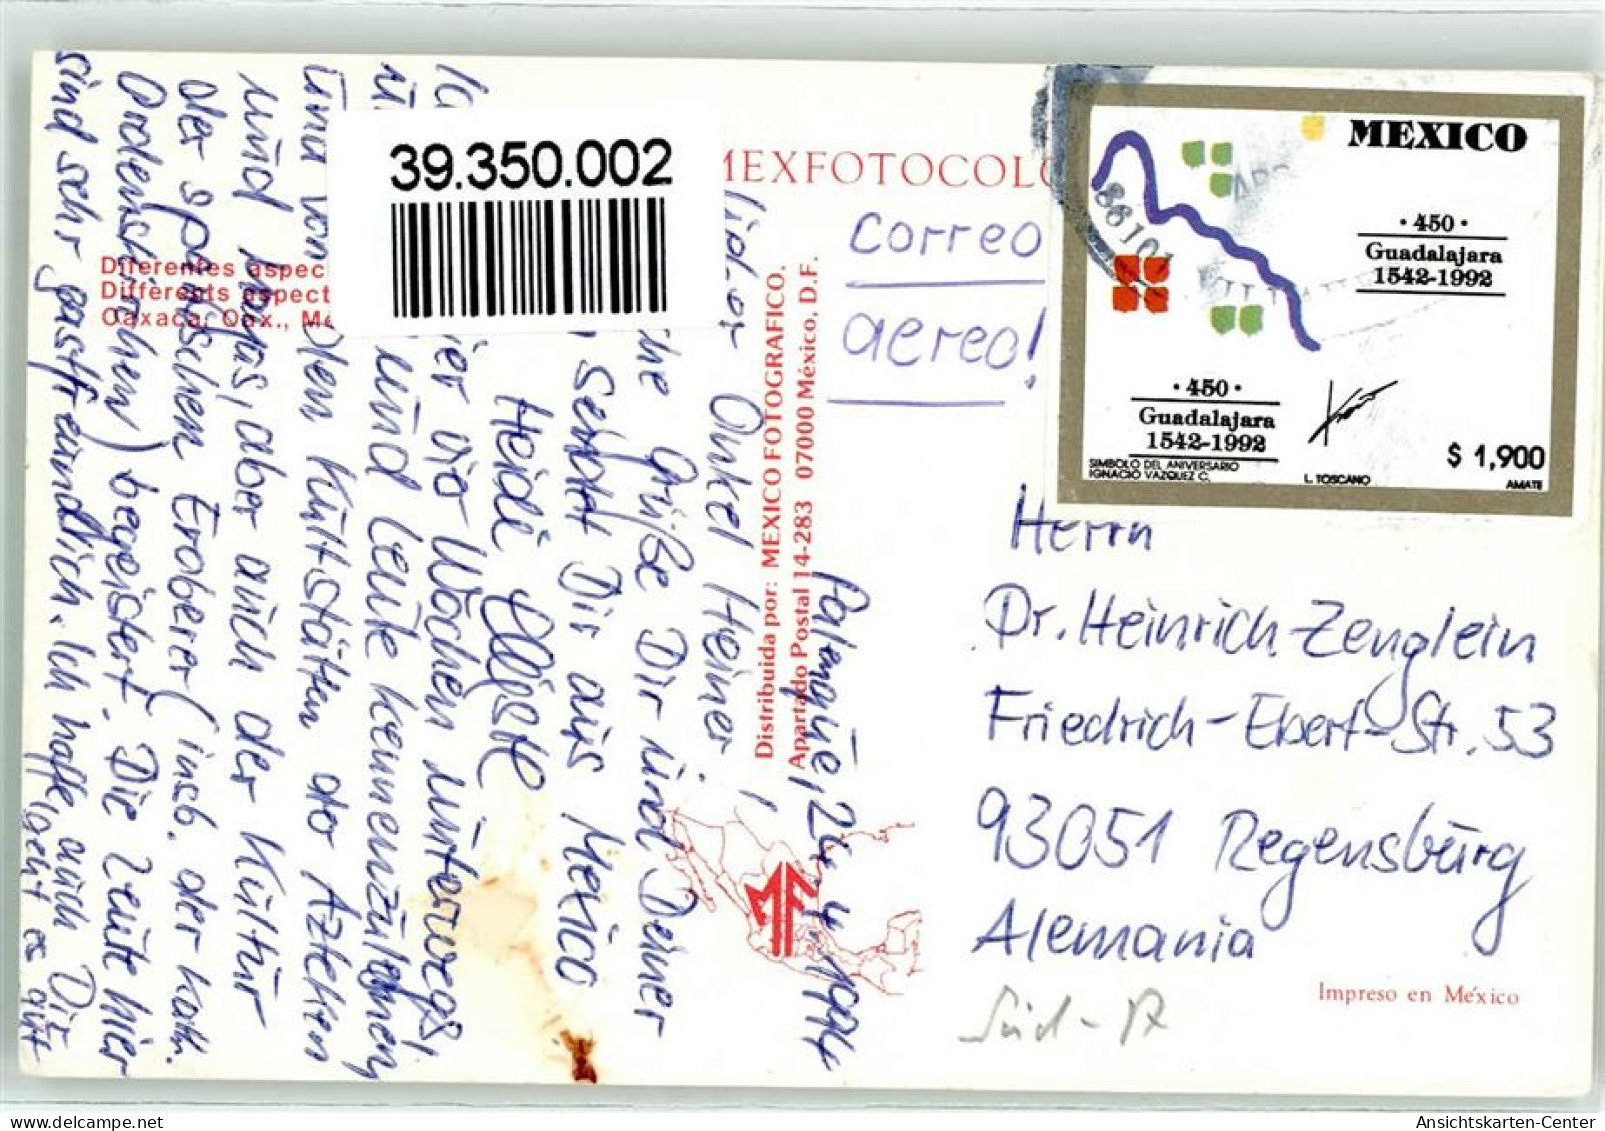 39.350.002
MEXFOTOCOLO
Diferentes aspec
Differents aspect
Oaxaca, Oax., Mé
Distribuida por: MEXICO FOTOGRAFICO.
Apartado Postal 14-283 07000 México, D.F.
Palenque, 24.4.1994
Lieber Onkel Heiner!
che Grüße Dir und Deiner
sendet Dir aus Mexico
Heidi
ier vier Wochen unterwegs,
und Leute kennenzulernen
von den Kultstätten der Azteken
und Mayas, aber auch der Kultur
der spanischen Eroberer (insb. der kath.
Ordenskirchen) begeistert. Die Leute hier
sind sehr gastfreundlich. Ich hoffe, auch Dir
geht es gut
correo
aereo!
MEXICO
· 450 ·
Guadalajara
1542-1992
· 450 ·
Guadalajara
1542-1992
SIMBOLO DEL ANIVERSARIO
IGNACIO VAZQUEZ C.
L. TOSCANO
$ 1,900
AMATE
Herrn
Dr. Heinrich Zenglein
Friedrich-Ebert-Str. 53
93051 Regensburg
Alemania
Impreso en México
Ansichtskarten-Center
www.delcampe.net